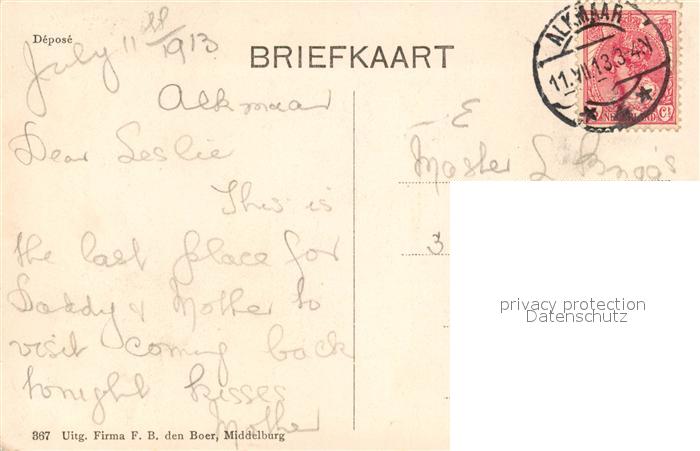 Déposé
July 11 1913
BRIEFKAART
ALKMAAR
11.VII.13.3-4N
Alkmaar
Dear Leslie
This is
the last place for
Daddy & Mother to
visit coming back
tonight kisses
Mother
Master L
3
privacy protection
Datenschutz
367 Uitg. Firma F. B. den Boer, Middelburg